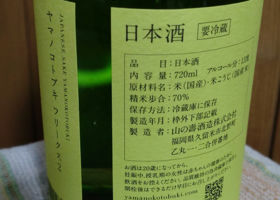 JAPANESE SAKE YAMANOKOTOBUKI
ヤマノコトブキ フリークス2
日本酒 要冷蔵
品目：日本酒
内容量：720ml アルコール分：13度
原材料名：米(国産)・米こうじ(国産米)
精米歩合：70%
保存方法：冷蔵庫に保存
製造年月：枠外下部に記載
製造者：山の壽酒造株式会社
福岡県久留米市北野町
乙丸一・二合併番地
お酒は20歳になってから。
yamanokotobuki.com